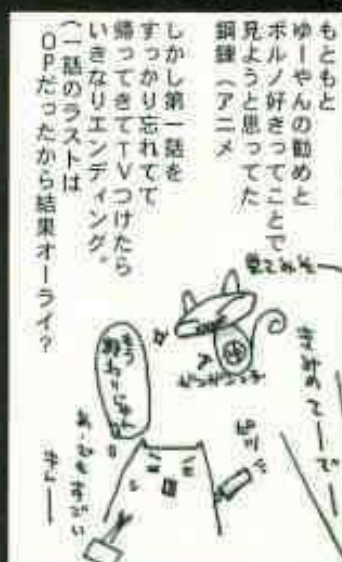 もともと
ゆーやんの勧めと
ポルノ好きってことで
見ようと思ってた
鋼錬(アニメ
しかし第一話を
すっかり忘れてて
帰ってきてTVつけたら
いきなりエンディング。
(一話のラストは
OPだったから結果オーライ?
見てみぃと
きみのてーでー
もう
終わりじゃん
ピッ